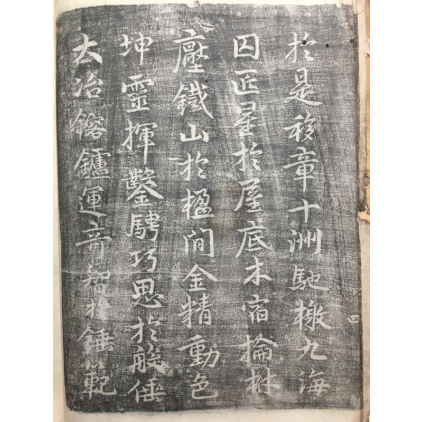 於是移章十洲馳檄九海
囚匠星於屋底木宿掄材
壓鐵山於楹間金精動色
坤靈揮鑿騁巧思於般倕
大冶鎔鑪運奇智於錘範